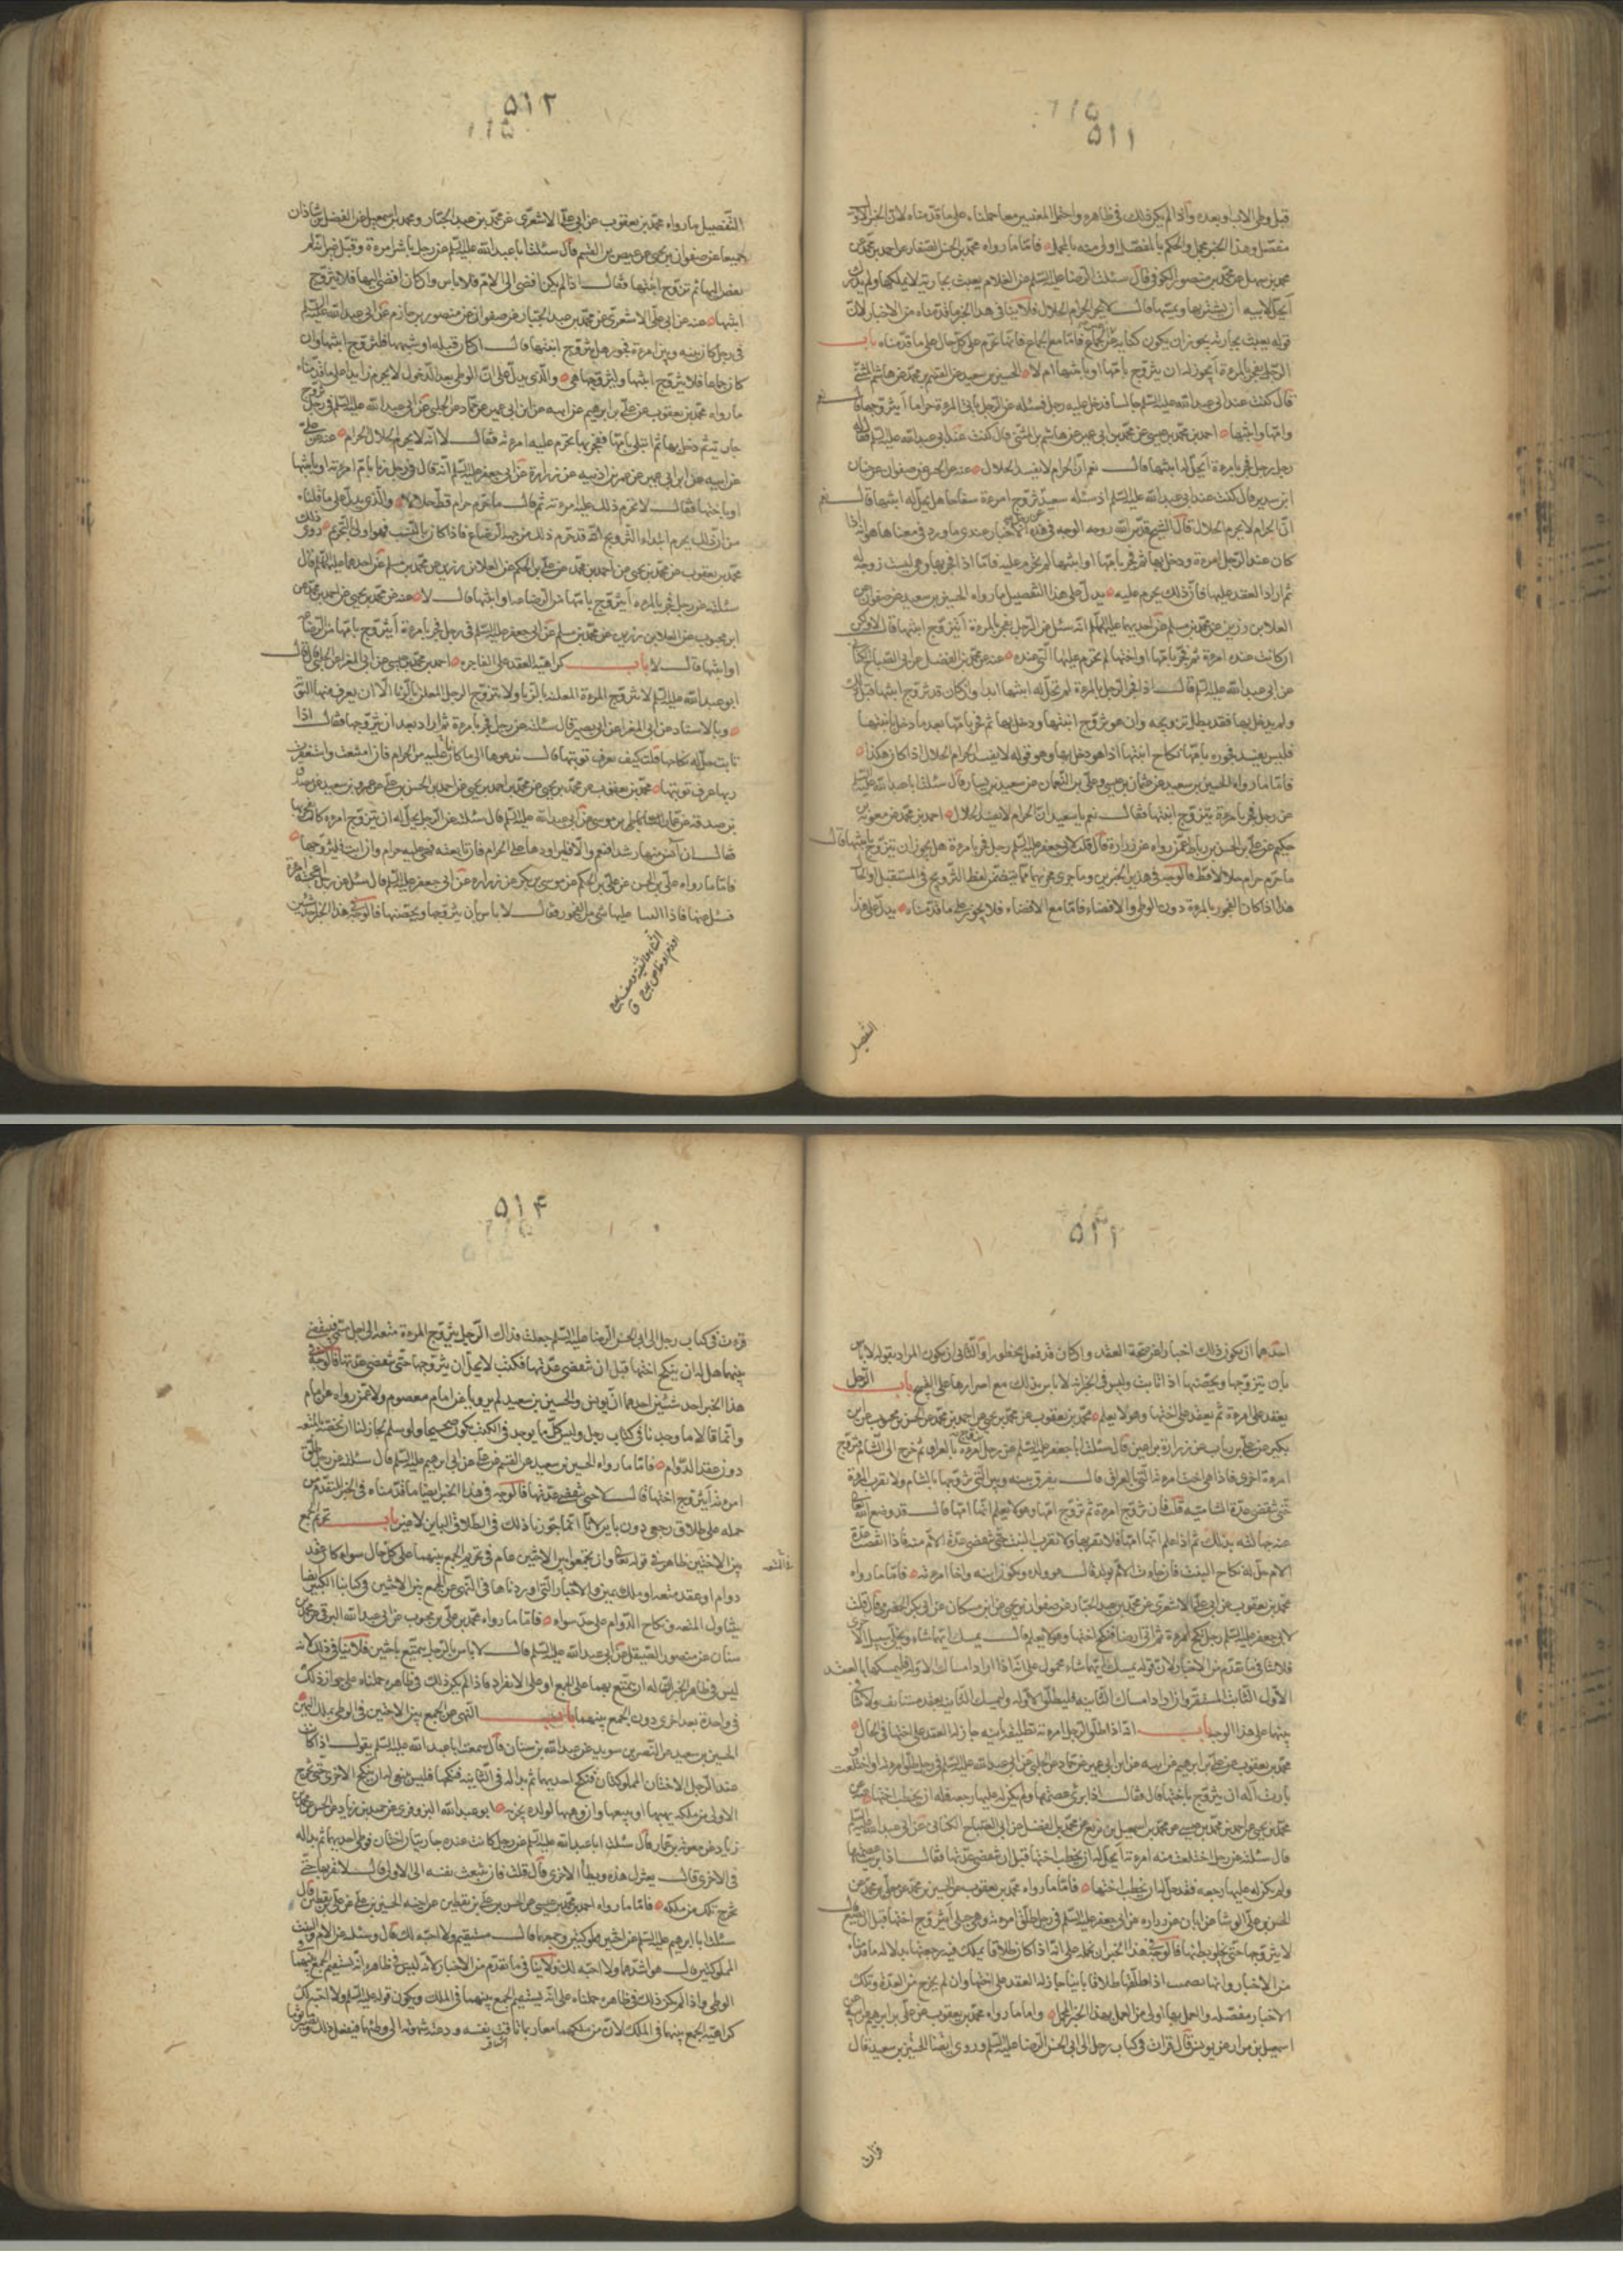 ٥١١
قبل وطى الاب او بعده واذا لم يكن ذلك فى ظاهره واحتمل المعنيين معا حملناه على ما قدمناه لان الخبر الاول
مفصل وهذا الخبر مجمل والحكم بالمفصل اولى منه بالمجمل فاما ما رواه محمد بن الحسن الصفار عن احمد بن محمد عن
محمد بن سهل عن محمد بن منصور الكوفى قال سئلت الرضا عليه السلم عن الغلام يعبث بجارية لا يملكها ولم يدرك
أيحل لابيه ان يشتريها ويمسها قال لا يحرم الحرام الحلال فلا ينافى هذا الخبر ما قدمناه من الاخبار لان
قوله يعبث بجارية يجوز ان يكون كناية عن غير الجماع فاما مع الجماع فانها تحرم على كل حال على ما قدمناه باب
الرجل يفجر بالمرءة أيجوز له ان يتزوج بامها او بابنتها ام لا الحسين بن سعيد عن القسم بن محمد عن هاشم بن المثنى
قال كنت عند ابى عبد الله عليه السلم جالسا فدخل عليه رجل فسئله عن الرجل ياتى المرءة حراما أيتزوجها قال نعم
وامها وابنتها احمد بن محمد بن عيسى عن محمد بن ابى عمير عن هاشم بن المثنى قال كنت عند ابى عبد الله عليه السلم فقال له
رجل رجل فجر بامرءة أيحل له ابنتها قال نعم ان الحرام لا يفسد الحلال عنه عن صفوان عن حنان
ابن سدير قال كنت عند ابى عبد الله عليه السلم اذ سئله سعيد عن رجل تزوج امرءة سفاحا هل يحل له ابنتها قال نعم
ان الحرام لا يحرم الحلال قال الشيخ قدس الله روحه الوجه فى هذه الاخبار عندى وما ورد فى معناها هو انه اذا
كان عند الرجل امرءة ودخل بها ثم فجر بامها او ابنتها لم تحرم عليه فاما اذا فجر بها وهى ليست زوجة له
ثم اراد العقد عليها فان ذلك يحرم عليه يدل على هذا التفصيل ما رواه الحسين بن سعيد عن صفوان عن
العلا بن رزين عن محمد بن مسلم عن احدهما عليهما السلم انه سئل عن الرجل يفجر بالمرءة أيتزوج ابنتها قال لا ولكن
ان كانت عنده امرءة ثم فجر بامها او اختها لم تحرم عليه التى عنده عنه عن محمد بن الفضيل عن ابى الصباح الكنانى
عن ابى عبد الله عليه السلم قال اذا فجر الرجل بالمرءة لم تحل له ابنتها ابدا وان كان قد تزوج ابنتها قبل ذلك
ولم يدخل بها فقد بطل تزويجه وان هو تزوج ابنتها ودخل بها ثم فجر بامها بعد ما دخل بابنتها
فليس يفسد فجوره بامها نكاح ابنتها اذا هو دخل بها وهو قوله لا يفسد الحرام الحلال اذا كان هكذا
فاما ما رواه الحسين بن سعيد عن عثمان بن عيسى وعلى بن النعمان عن سعيد بن يسار قال سئلت ابا عبد الله عليه السلم
عن رجل فجر بامرءة يتزوج ابنتها فقال نعم يا سعيد ان الحرام لا يفسد الحلال احمد بن محمد عن معوية بن
حكيم عن على بن الحسن بن رباط عمن رواه عن زرارة قال قلت لابى جعفر عليه السلم رجل فجر بامرءة هل يجوز ان يتزوج بابنتها قال
ما حرم حرام حلالا قط فالوجه فى هذين الخبرين وما جرى مجريهما مما يتضمن لفظ التزويج فى المستقبل او الحال
هذا اذا كان الفجور بالمرءة دون الوطى والافضاء فاما مع الافضاء فلا يجوز على ما قدمناه يدل على هذا
التفصيل
٥١٢
التفصيل ما رواه محمد بن يعقوب عن ابى على الاشعرى عن محمد بن عبد الجبار ومحمد بن اسمعيل عن الفضل بن شاذان
جميعا عن صفوان بن يحيى عن عيص بن القسم قال سئلت ابا عبد الله عليه السلم عن رجل باشر امرءة وقبل غير انه لم
يفض اليها ثم تزوج ابنتها فقال اذا لم يكن افضى الى الام فلا باس وان كان افضى اليها فلا يتزوج
ابنتها عنه عن ابى على الاشعرى عن محمد بن عبد الجبار عن صفوان عن منصور بن حازم عن ابى عبد الله عليه السلم
فى رجل كان بينه وبين امرءة فجور هل يتزوج ابنتها قال ان كان قبلة او شبهها فليتزوج ابنتها وان
كان جماعا فلا يتزوج ابنتها وليتزوجها هى والذى يدل على ان الوطى بعد الدخول لا يحرم زايدا على ما قدمناه
ما رواه محمد بن يعقوب عن على بن ابرهيم عن ابيه عن ابن ابى عمير عن حماد عن الحلبى عن ابى عبد الله عليه السلم فى رجل تزوج
جارية فدخل بها ثم ابتلى بامها ففجر بها أتحرم عليه امرءته فقال لا انه لا يحرم الحلال الحرام عنه عن على
عن ابيه عن ابن ابى عمير عن عمر بن اذينه عن زرارة عن ابى جعفر عليه السلم انه قال فى رجل زنا بام امرءته او بابنتها
او باختها فقال لا يحرم ذلك عليه امرءته ثم قال ما حرم حرام قط حلالا والذى يدل على ما قلناه
محمد بن يعقوب عن محمد بن يحيى عن احمد بن محمد عن على بن الحكم عن العلا بن رزين عن محمد بن مسلم عن احدهما عليهما السلم قال
سئلته عن رجل فجر بامرءة أيتزوج بامها من الرضاعة او ابنتها قال لا عنه عن محمد بن يحيى عن احمد بن محمد عن
ابن محبوب عن العلا بن رزين عن محمد بن مسلم عن ابى جعفر عليه السلم فى رجل فجر بامرءة أيتزوج بامها من الرضاع
او ابنتها قال لا باب كراهية العقد على الفاجرة احمد بن محمد بن عيسى عن ابى المغرا عن الحلبى قال قال
ابو عبد الله عليه السلم لا تتزوج المرءة المعلنة بالزنا ولا يتزوج الرجل المعلن بالزنا الا ان يعرف منهما التوبة
وبالاسناد عن ابى المغرا عن ابى بصير قال سئلته عن رجل فجر بامرءة ثم اراد بعد ان يتزوجها فقال اذا
تابت حل له نكاحها قلت كيف يعرف توبتها قال يدعوها الى ما كانا عليه من الحرام فان امتنعت واستغفرت
ربها عرف توبتها محمد بن يعقوب عن محمد بن يحيى عن محمد بن احمد بن يحيى عن احمد بن الحسن بن على عن عمرو بن سعيد عن مصدق
بن صدقة عن عمار بن موسى عن ابى عبد الله عليه السلم قال سئلته عن الرجل يحل له ان يتزوج امرءة كان يفجر بها
فقال ان آنس منها رشدا فنعم والا فليراودها على الحرام فان تابعته فهى عليه حرام وان ابت فليتزوجها
فاما ما رواه على بن الحسن عن على بن الحكم عن موسى بن بكر عن زرارة عن ابى جعفر عليه السلم قال سئل عن رجل اعجبته امرءة
فسئل عنها فاذا الثناء عليها شئ من الفجور فقال لا باس بان يتزوجها ويحصنها فالوجه فى هذا الخبر احد شيئين
٥١٣
احدهما ان يكون ذلك اخبارا عن صحة العقد وان كان قد فعل محظورا والثانى ان يكون المراد بقوله لا باس
بان يتزوجها ويحصنها اذا تابت وليس فى الخبر انه لا باس بذلك مع اصرارها على القبيح باب الرجل
يعقد على امرءة ثم يعقد على اختها وهو لا يعلم محمد بن يعقوب عن محمد بن يحيى عن احمد بن محمد عن الحسن بن محبوب عن ابن
بكير عن على بن رياب عن زرارة بن اعين قال سئلت ابا جعفر عليه السلم عن رجل تزوج امرءة بالعراق ثم خرج الى الشام فتزوج
امرءة اخرى فاذا هى اخت امرءته التى بالعراق قال يفرق بينه وبين التى تزوجها بالشام ولا يقرب المرءة
حتى تنقضى عدة الشامية قلت فان تزوج امرءة ثم تزوج امها وهو لا يعلم انها امها قال قد وضع الله
عنه جهالته بذلك ثم اذا علم انها امها فلا يقربها ولا يقرب البنت حتى تنقضى عدة الام منه فاذا انقضت عدة
الام حل له نكاح البنت فان جاءت الام بولد قال هو ولده ويكون ابنه واخا امرءته فاما ما رواه
محمد بن يعقوب عن ابى على الاشعرى عن محمد بن عبد الجبار عن صفوان بن يحيى عن ابن مسكان عن ابى بكر الحضرمى قال قلت
لابى جعفر عليه السلم رجل نكح امرءة ثم اتى ارضا فنكح اختها وهو لا يعلم قال يمسك ايتهما شاء ويخلى سبيل الاخرى
فلا ينافى ما تقدم من الاخبار لان قوله يمسك ايتهما شاء محمول على انه اذا اراد امساك الاولة فليمسكها بالعقد
الاول الثابت المستقر وان اراد امساك الثانية فليطلق الاولة وليمسك الثانية بعقد مستانف ولا تنافى
بينهما على هذا الوجه باب انه اذا طلق الرجل امرءته تطليقة باينة جاز له العقد على اختها فى الحال
محمد بن يعقوب عن على بن ابرهيم عن ابيه عن ابن ابى عمير عن حماد عن الحلبى عن ابى عبد الله عليه السلم فى رجل طلق امرءته او اختلعت
او بارئت أله ان يتزوج باختها قال فقال اذا برئ عصمتها ولم يكن له عليها رجعة فله ان يخطب اختها عنه عن
محمد بن يحيى عن احمد بن محمد بن عيسى عن محمد بن اسمعيل بن بزيع عن محمد بن الفضيل عن ابى الصباح الكنانى عن ابى عبد الله عليه السلم
قال سئلته عن رجل اختلعت منه امرءته أيحل له ان يخطب اختها قبل ان تنقضى عدتها فقال اذا برئت عصمتها
ولم يكن له عليها رجعة فقد حل له ان يخطب اختها فاما ما رواه محمد بن يعقوب عن الحسين بن محمد عن معلى بن محمد عن
الحسن بن على الوشا عن ابان عن زراره عن ابى جعفر عليه السلم فى رجل طلق امرءته وهى حبلى أيتزوج اختها قبل ان تضع قال
لا يتزوجها حتى يخلو بطنها فالوجه فى هذا الخبر ان نحمله على انه اذا كان طلاقا يملك فيه رجعتها بدلالة ما قدمناه
من الاخبار وانها تضمنت اذا طلقها طلاقا باينا جاز له العقد على اختها وان لم يخرج من العدة وتلك
الاخبار مفصلة والعمل بها اولى من العمل بهذا الخبر المجمل واما ما رواه محمد بن يعقوب عن على بن ابرهيم عن ابيه عن
اسمعيل بن مرار عن يونس قال قرات فى كتاب رجل الى ابى الحسن الرضا عليه السلم وروى ايضا الحسين بن سعيد قال
قرات
٥١٤
قرءت فى كتاب رجل الى ابى الحسن الرضا عليه السلم جعلت فداك الرجل يتزوج المرءة متعة الى اجل مسمى فينقضى
بينهما هل له ان ينكح اختها قبل ان تنقضى عدتها فكتب لا يحل ان يتزوجها حتى تنقضى عدتها فالوجه فى
هذا الخبر احد شيئين احدهما ان يونس والحسين بن سعيد لم يرويا عن امام معصوم ولا عمن رواه عن امام
وانما قالا ما وجدنا فى كتاب رجل وليس كل ما يوجد فى الكتب يكون صحيحا ولو سلم لجاز لنا ان نخصه بالمتعة
دون عقد الدوام فاما ما رواه الحسين بن سعيد عن القسم عن على عن ابى ابرهيم عليه السلم قال سئلته عن رجل طلق
امرءته أيتزوج اختها قال لا حتى تنقضى عدتها فالوجه فى هذا الخبر ايضا ما قدمناه فى الخبر المتقدم من
حمله على طلاق رجعى دون باين لانا انما نجوز ذلك فى الطلاق الباين لا غير باب تحريم الجمع
بين الاختين ظاهر فى قوله تعالى وان تجمعوا بين الاختين عام فى تحريم الجمع بينهما على كل حال سواء كان عقد
دوام او عقد متعة او ملك يمين والاخبار التى اوردناها فى النهى عن الجمع بين الاختين فى كتابنا الكبير ايضا
يتناول المتعة ونكاح الدوام على حد سواء فاما ما رواه محمد بن على بن محبوب عن ابى عبد الله البرقى عن محمد بن
سنان عن منصور الصيقل عن ابى عبد الله عليه السلم قال لا باس بالرجل يتمتع باختين فلا ينافى ذلك لانه
ليس فى ظاهر الخبر انه له ان يتمتع بهما على الجمع او على الانفراد فاذا لم يكن ذلك فى ظاهره حملناه على جواز ذلك
فى واحدة بعد اخرى دون الجمع بينهما باب النهى عن الجمع بين الاختين فى الوطى بملك اليمين
الحسين بن سعيد عن النضر بن سويد عن عبد الله بن سنان قال سمعت ابا عبد الله عليه السلم يقول اذا كان
عند الرجل الاختان المملوكتان فنكح احديهما ثم بدا له فى الثانية فنكحها فليس ينبغى له ان ينكح الاخرى حتى تخرج
الاولى من ملكه يهبها او يبيعها وان وهبها لولده يجزيه ابو عبد الله البزوفرى عن حميد بن زياد عن الحسن بن محمد عن
زياد عن معوية بن عمار قال سئلت ابا عبد الله عليه السلم عن رجل كانت عنده جاريتان اختان فوطى احديهما ثم بدا له
فى الاخرى قال يعتزل هذه ويطأ الاخرى قال قلت فان تنبعث نفسه الى الاولى قال لا يقربها حتى
تخرج تلك من ملكه فاما ما رواه احمد بن محمد بن عيسى عن الحسن بن على بن يقطين عن اخيه الحسين بن على عن على بن يقطين قال
سئلت ابا ابرهيم عليه السلم عن اختين مملوكتين وجمعهما قال مستقيم ولا احبه لك قال وسئلته عن الام والبنت
المملوكتين قال هو اشدهما ولا احبه لك فلا ينافى ما تقدم من الاخبار لانه ليس فى ظاهره انه يستقيم الجمع بينهما فى
الوطى واذا لم يكن ذلك فى ظاهره حملناه على انه يستقيم الجمع بينهما فى الملك ويكون قوله عليه السلم ولا احبه لك
كراهية الجمع بينهما فى الملك لان من ملكهما معا ربما تاقت نفسه ودعته شهوته الى وطئهما فيفعل ذلك